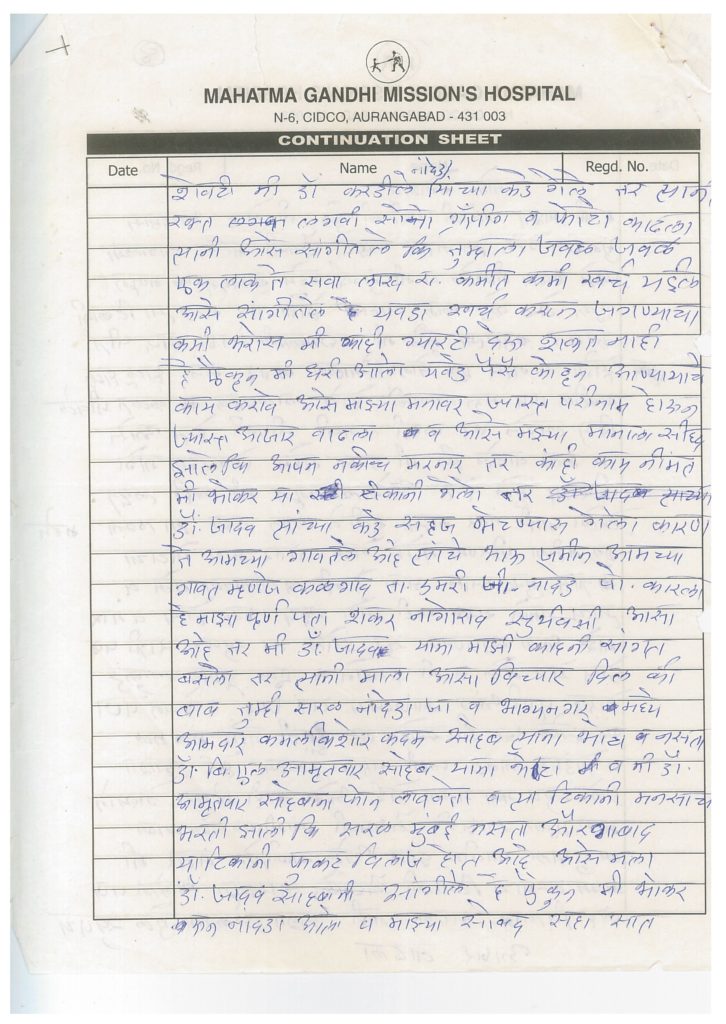 MAHATMA GANDHI MISSION'S HOSPITAL
N-6, CIDCO, AURANGABAD - 431 003
CONTINUATION SHEET
Date Name नांदेड Regd. No.
शेवटी मी डॉ करडीले यांच्या कडे गेलो तर त्यानी
रक्त लगवी सोनो ग्राँफीग व फोटो काढला
त्यानी आसे सांगीतले कि तुम्हाला जवळ जवळ
एक लाक ते सवा लाख रु. कमीत कमी खर्च पडेल
आसे सांगीतले हे येवडा खर्च करून जगण्याचा
कमी करोस मी कांही ग्यारंटी देऊ शकत नाही
हे ऐकून मी घरी आलो येवडे पैसे कोठून आणायाचे
काय करावे आसे माझ्या मनावर ज्यास्त परीनाम होऊन
ज्यास्त आजार वाढला व आसे माझ्या मानाला सीध्द
झाले कि आपन नक्कीच मरनार तर कांही काम नीमंत
मी भोकर या ठीकानी गेलो तर
डॉ. जादव सांच्या कडे सहज भेटण्यास गेलो कारण
ते आमच्या गावातले आहे त्यांचे आता जमीन आमच्या
गावत म्हणजे कळगाव ता. उमरी जी. नांदेड पो. कारला
हे माझा पुर्ण पता शंकर नागोराव सुर्यवंशी आसा
आहे तर मी डॉ जादव याना माझी काहनी सांगत
बसलो तर त्यानी माला आसा विच्यार दिला की
बाब तुम्ही सरळ नांदेडा जा व भाग्यनगर मध्ये
आमदार कमलकिशोर कदम साहेब याना भेटा व नसता
डॉ. बिपुल आमृतवार साहेब याना भेटा मी व मी डॉ.
आमृतवार साहेबाना फोन लाववतो व त्या ठिकानी मनसाचे
भरती झाली कि सरळ मुंबई नसता औरंगाबाद
या ठिकानी फुकट विलाज होत आहे आसे मला
डॉ. जादव साहेबानी सांगीले हे ऐकुन मी भोकर
वरून नांदेडा आलो व माझ्या सोबत सहा सात